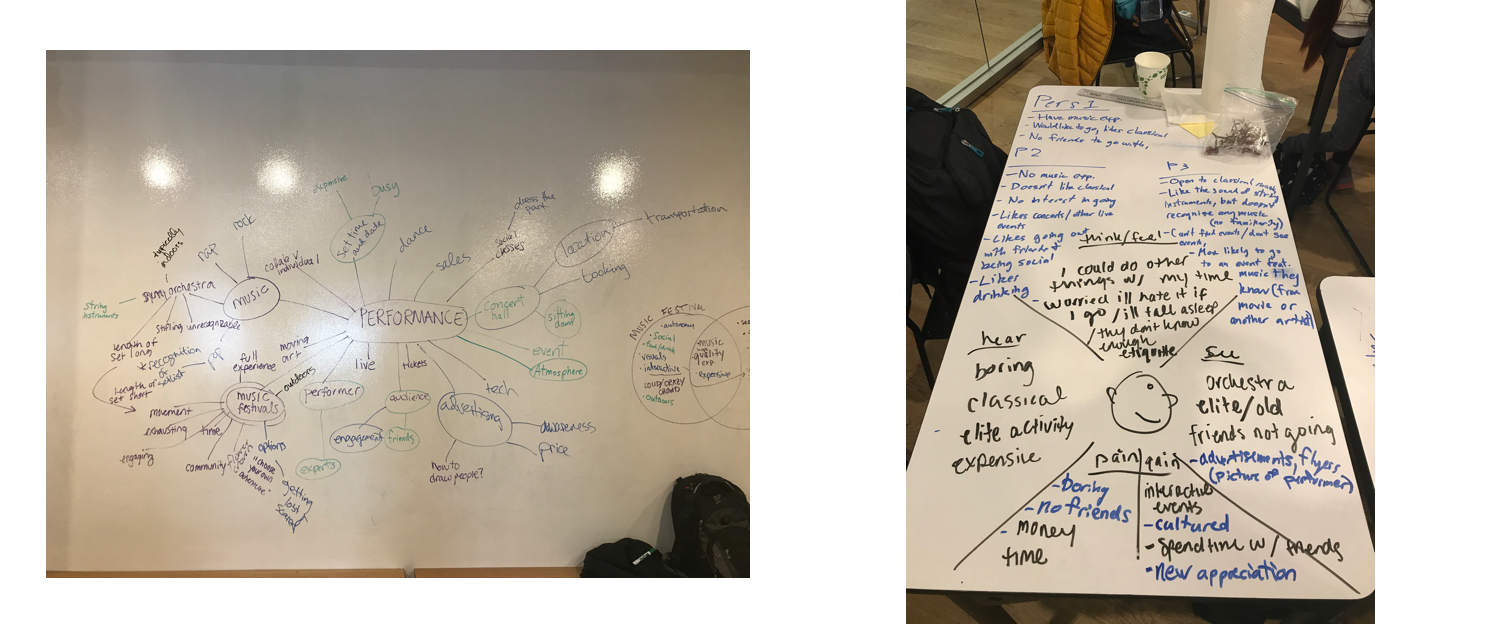 expensive
busy
set time
and date
rock
rap
typically
indoors
collab v
individual
dance
sales
social
classes
dress the
part
location
transportation
booking
music
orchestra
string
instruments
stifling
unrecognizable
length of
set long
* recognition
of
setlist
pop
length of
set short
PERFORMANCE
concert
hall
sitting
down
event
Atmosphere
full
experience
moving
art
live
tickets
outdoors
music
festivals
movement
exhausting
engaging
time
community
options
"choose
your own
adventure"
getting
lost
performer
experts
audience
engagement
friends
tech
advertising
awareness
price
how to
draw people?
MUSIC FESTIVAL
• autonomy
• social
• visuals
• interactive
LOUD/CRAZY
CROWD
• outdoors
music
quality
• expensive
Pers 1
- Have music exp.
- Would like to go, likes classical
- No friends to go with,
P2
- No music exp.
- Doesn't like classical
- No interest in going
- Likes concerts/other live
events
- Likes going out
with friends &
being social
- Likes
drinking
P3
- Open to classical music
- Like the sound of string
instruments, but doesn't
recognize any music
(no familiarity)
- Can't find events/don't see
events,
- More likely to go
to an event feat.
music they
know (from
movie or
another artist)
think/feel
I could do other
things w/ my time
- worried ill hate it if
I go/ill fall asleep
/they don't know
enough
etiquitte
hear
boring
classical
elite activity
expensive
see
orchestra
elite/old
friends not going
- advertisements, flyers
(picture of performer)
pain
- boring
- no friends
- money
time
gain
interactive
events
- cultured
- spend time w/ friends
• new appreciation